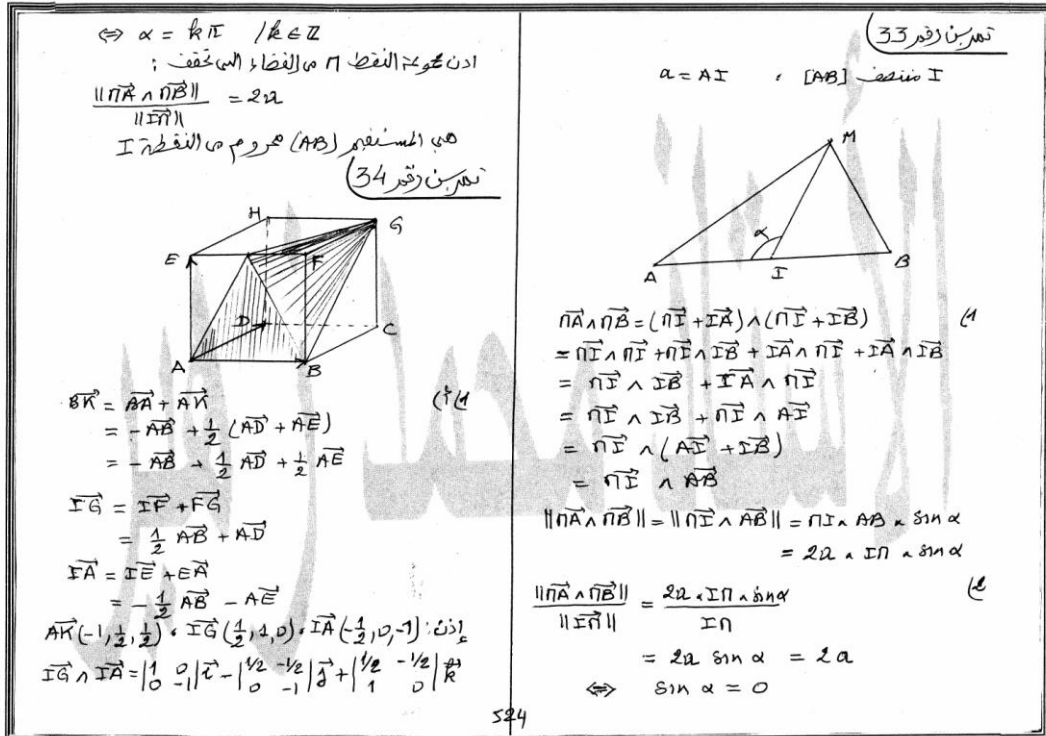 تمرين رقم 33
I منتصف [AB] ، a = AI
M
α
A
I
B
1)
MA⃗ ∧ MB⃗ = (MI⃗ + IA⃗) ∧ (MI⃗ + IB⃗)
= MI⃗ ∧ MI⃗ + MI⃗ ∧ IB⃗ + IA⃗ ∧ MI⃗ + IA⃗ ∧ IB⃗
= MI⃗ ∧ IB⃗ + IA⃗ ∧ MI⃗
= MI⃗ ∧ IB⃗ + MI⃗ ∧ AI⃗
= MI⃗ ∧ (AI⃗ + IB⃗)
= MI⃗ ∧ AB⃗
||MA⃗ ∧ MB⃗|| = ||MI⃗ ∧ AB⃗|| = MI × AB × sin α
= 2a × IM × sin α
2)
||MA⃗ ∧ MB⃗|| / ||IM⃗|| = 2a × IM × sin α / IM
= 2a sin α = 2a
⇔ sin α = 0
⇔ α = kπ / k ∈ Z
اذن مجموعة النقط M من الفضاء التي تحقق :
||MA⃗ ∧ MB⃗|| / ||IM⃗|| = 2a
هي المستقيم (AB) محروم من النقطة I
تمرين رقم 34
H
G
E
F
D
C
A
B
1) أ)
BK⃗ = BA⃗ + AK⃗
= -AB⃗ + 1/2 (AD⃗ + AE⃗)
= -AB⃗ + 1/2 AD⃗ + 1/2 AE⃗
IG⃗ = IF⃗ + FG⃗
= 1/2 AB⃗ + AD⃗
IA⃗ = IE⃗ + EA⃗
= -1/2 AB⃗ - AE⃗
إذن: IA⃗(-1/2, 0, -1) ، IG⃗(1/2, 1, 0) ، AK⃗(-1, 1/2, 1/2)
IG⃗ ∧ IA⃗ = |1 0; 0 -1| i⃗ - |1/2 -1/2; 0 -1| j⃗ + |1/2 -1/2; 1 0| k⃗
524